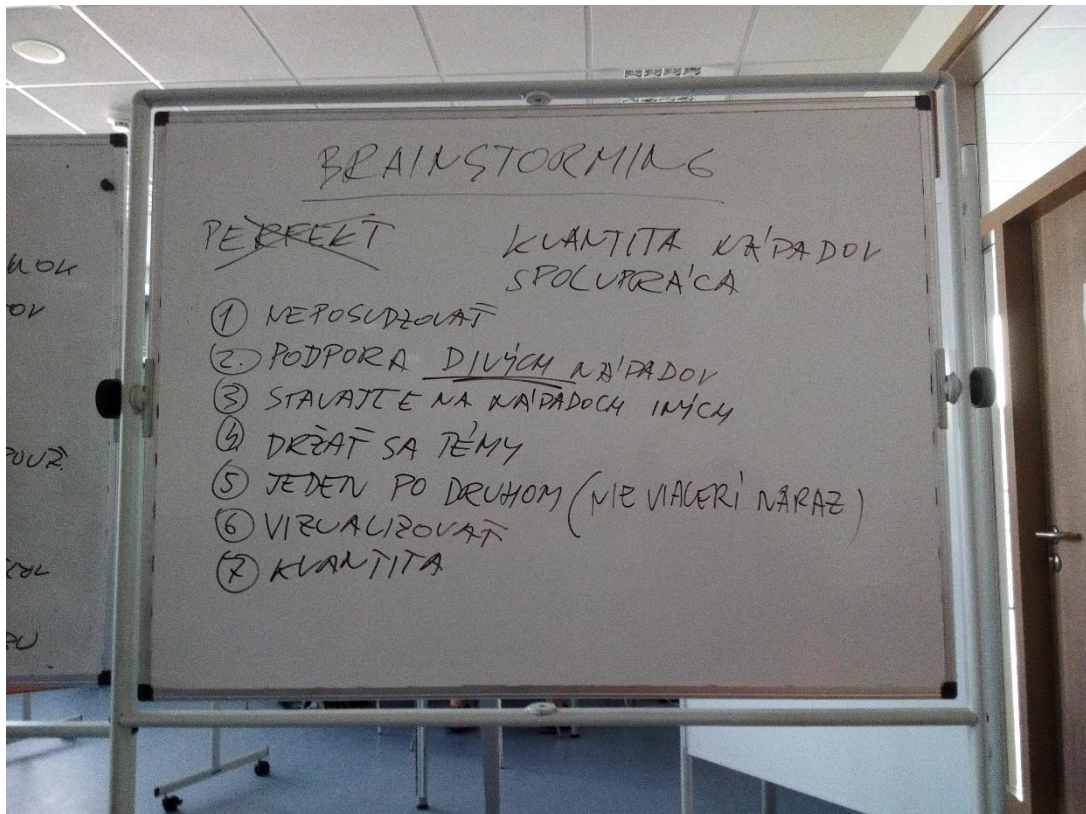 BRAINSTORMING
PERFEKT
KVANTITA NÁPADOV
SPOLUPRÁCA
1 NEPOSUDZOVAŤ
2. PODPORA DIVÝCH NÁPADOV
3 STAVAJTE NA NÁPADOCH INÝCH
4 DRŽAŤ SA TÉMY
5 JEDEN PO DRUHOM (NIE VIACERÍ NARAZ)
6 VIZUALIZOVAŤ
7 KVANTITA